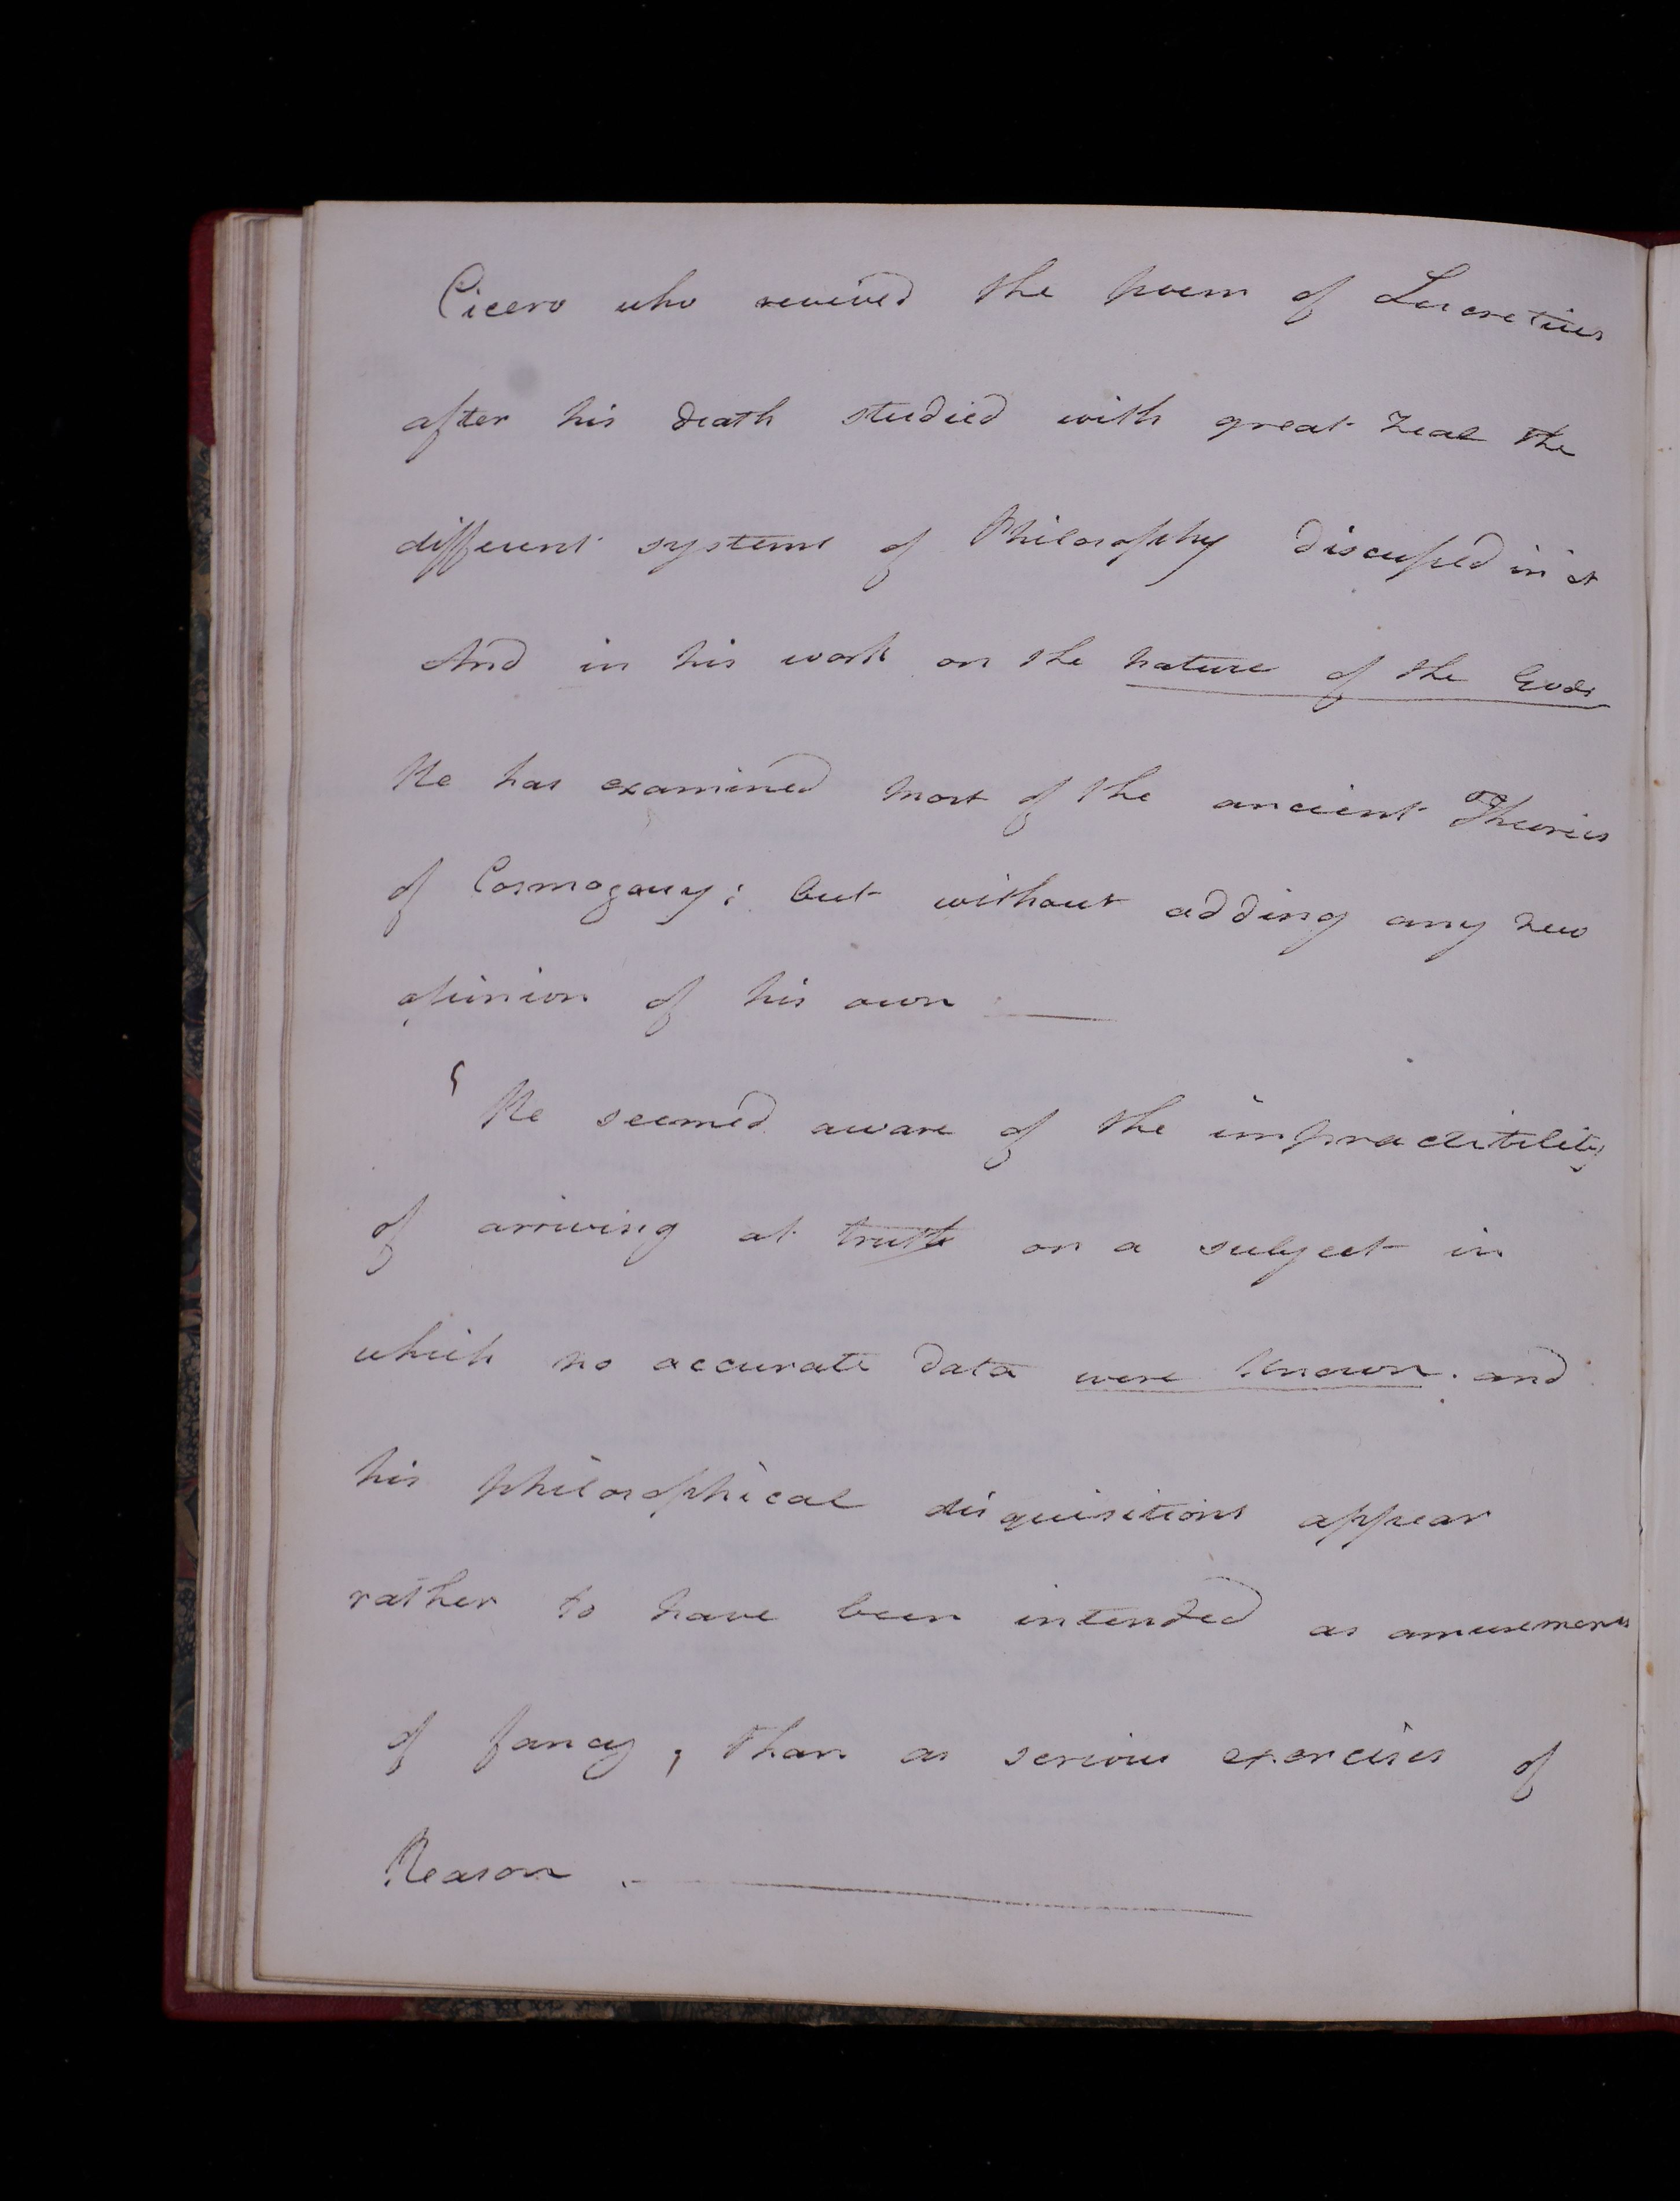 Cicero who revived the poem of Lucretius
after his death studied with great zeal the
different systems of Philosophy discussed in it
And in his work on the nature of the Gods
He has examined most of the ancient Theories
of Cosmogony; but without adding any new
opinion of his own —
He seemed aware of the impractibility
of arriving at truth on a subject in
which no accurate data were known. and
his philosophical disquisitions appear
rather to have been intended as amusements
of fancy, than as serious exercises of
Reason. —